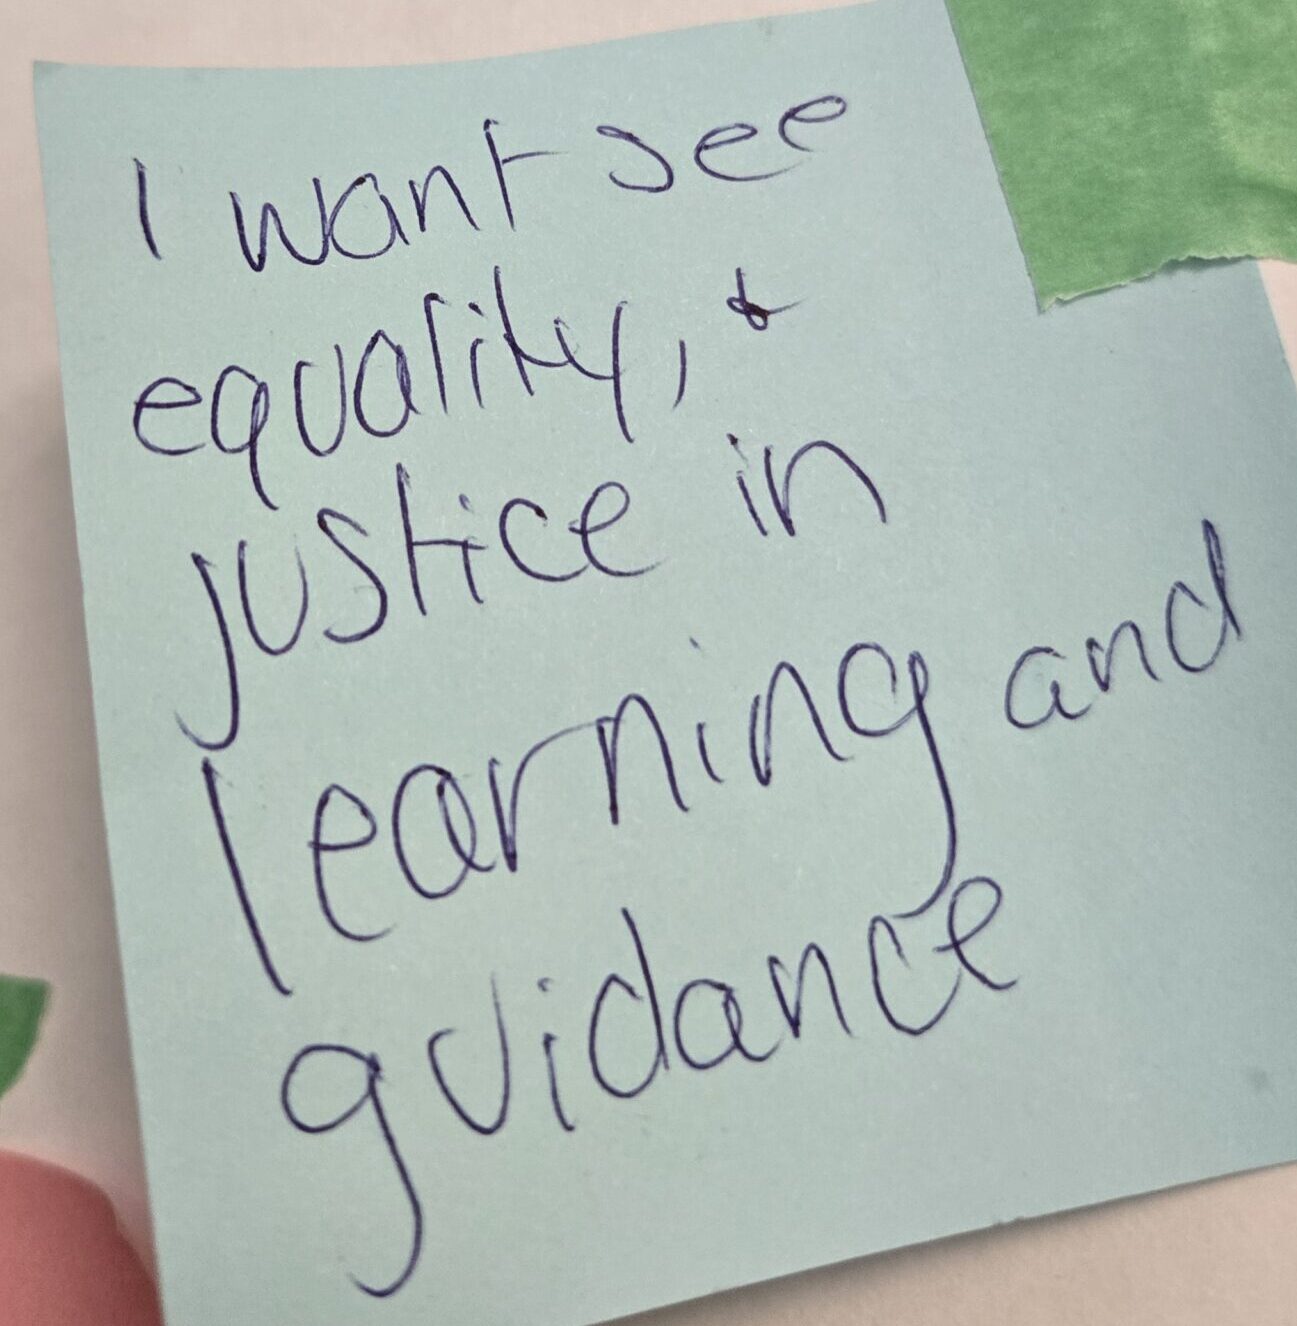 I want see
equality, &
justice in
learning and
guidance